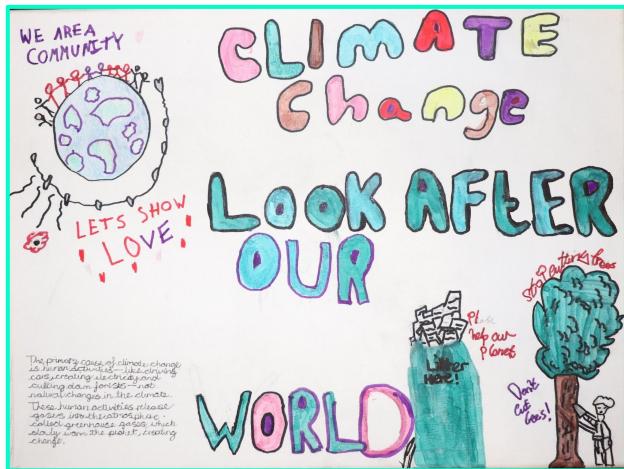 WE ARE A
COMMUNITY
CLIMATE
Change
LETS SHOW
LOVE
LOOK AFTER
OUR
WORLD
The primary cause of climate change
is human activities—like driving
cars, creating electricity and
cutting down forests—not
natural changes in the climate.
These human activities release
gases into the atmosphere -
collect greenhouse gases, which
slowly warm the planet, creating
change.
Litter
Here!
help our
Planet
stop cutting trees
Don't
cut
trees!